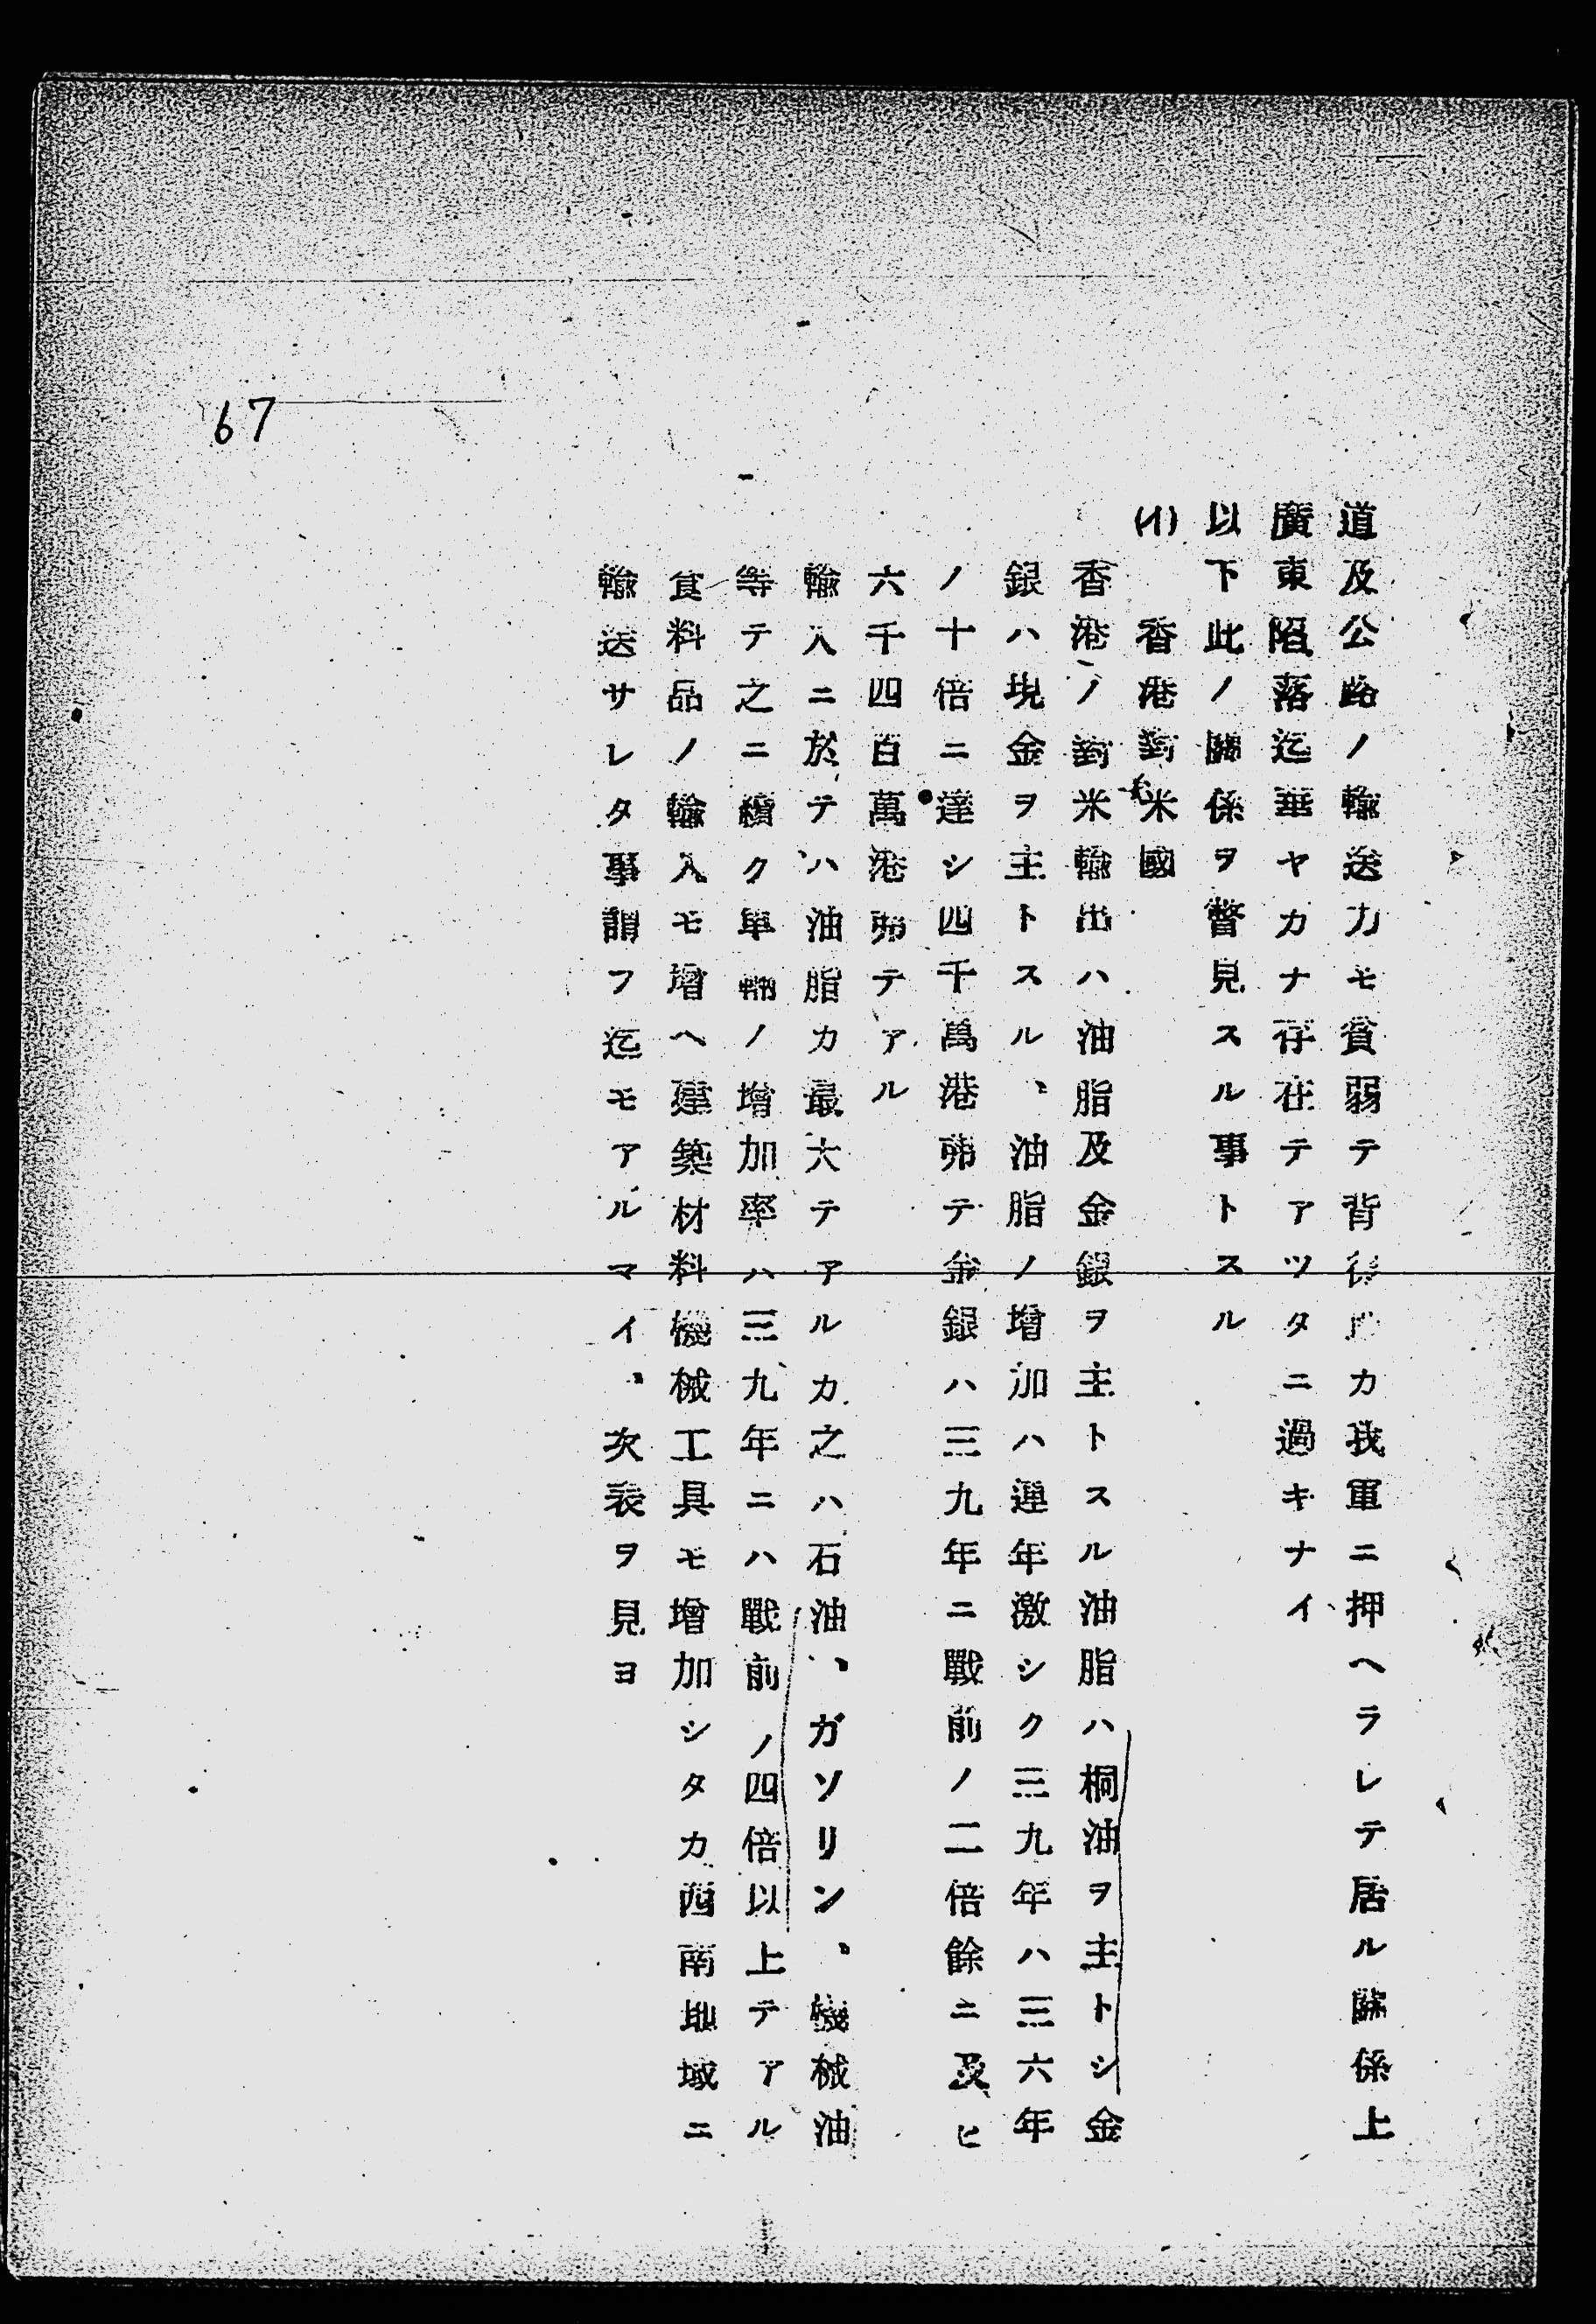 道及公路ノ輸送力モ貧弱テ背後カ我軍ニ押ヘラレテ居ル關係上
廣東陷落迄華ヤカナ存在テアツタニ過キナイ
以下此ノ關係ヲ瞥見スル事トスル
(イ) 香港對米國
香港ノ對米輸出ハ油脂及金銀ヲ主トスル油脂ハ桐油ヲ主トシ金
銀ハ現金ヲ主トスル、油脂ノ增加ハ連年激シク三九年ハ三六年
ノ十倍ニ達シ四千萬港弗テ金銀ハ三九年ニ戰前ノ二倍餘ニ及ヒ
六千四百萬港弗テアル
輸入ニ於テハ油脂カ最大テアルカ之ハ石油、ガソリン、機械油
等テ之ニ續ク車輛ノ增加率ハ三九年ニハ戰前ノ四倍以上テアル
食料品ノ輸入モ增ヘ建築材料機械工具モ增加シタカ西南地域ニ
輸送サレタ事謂フ迄モアルマイ、次表ヲ見ヨ
67